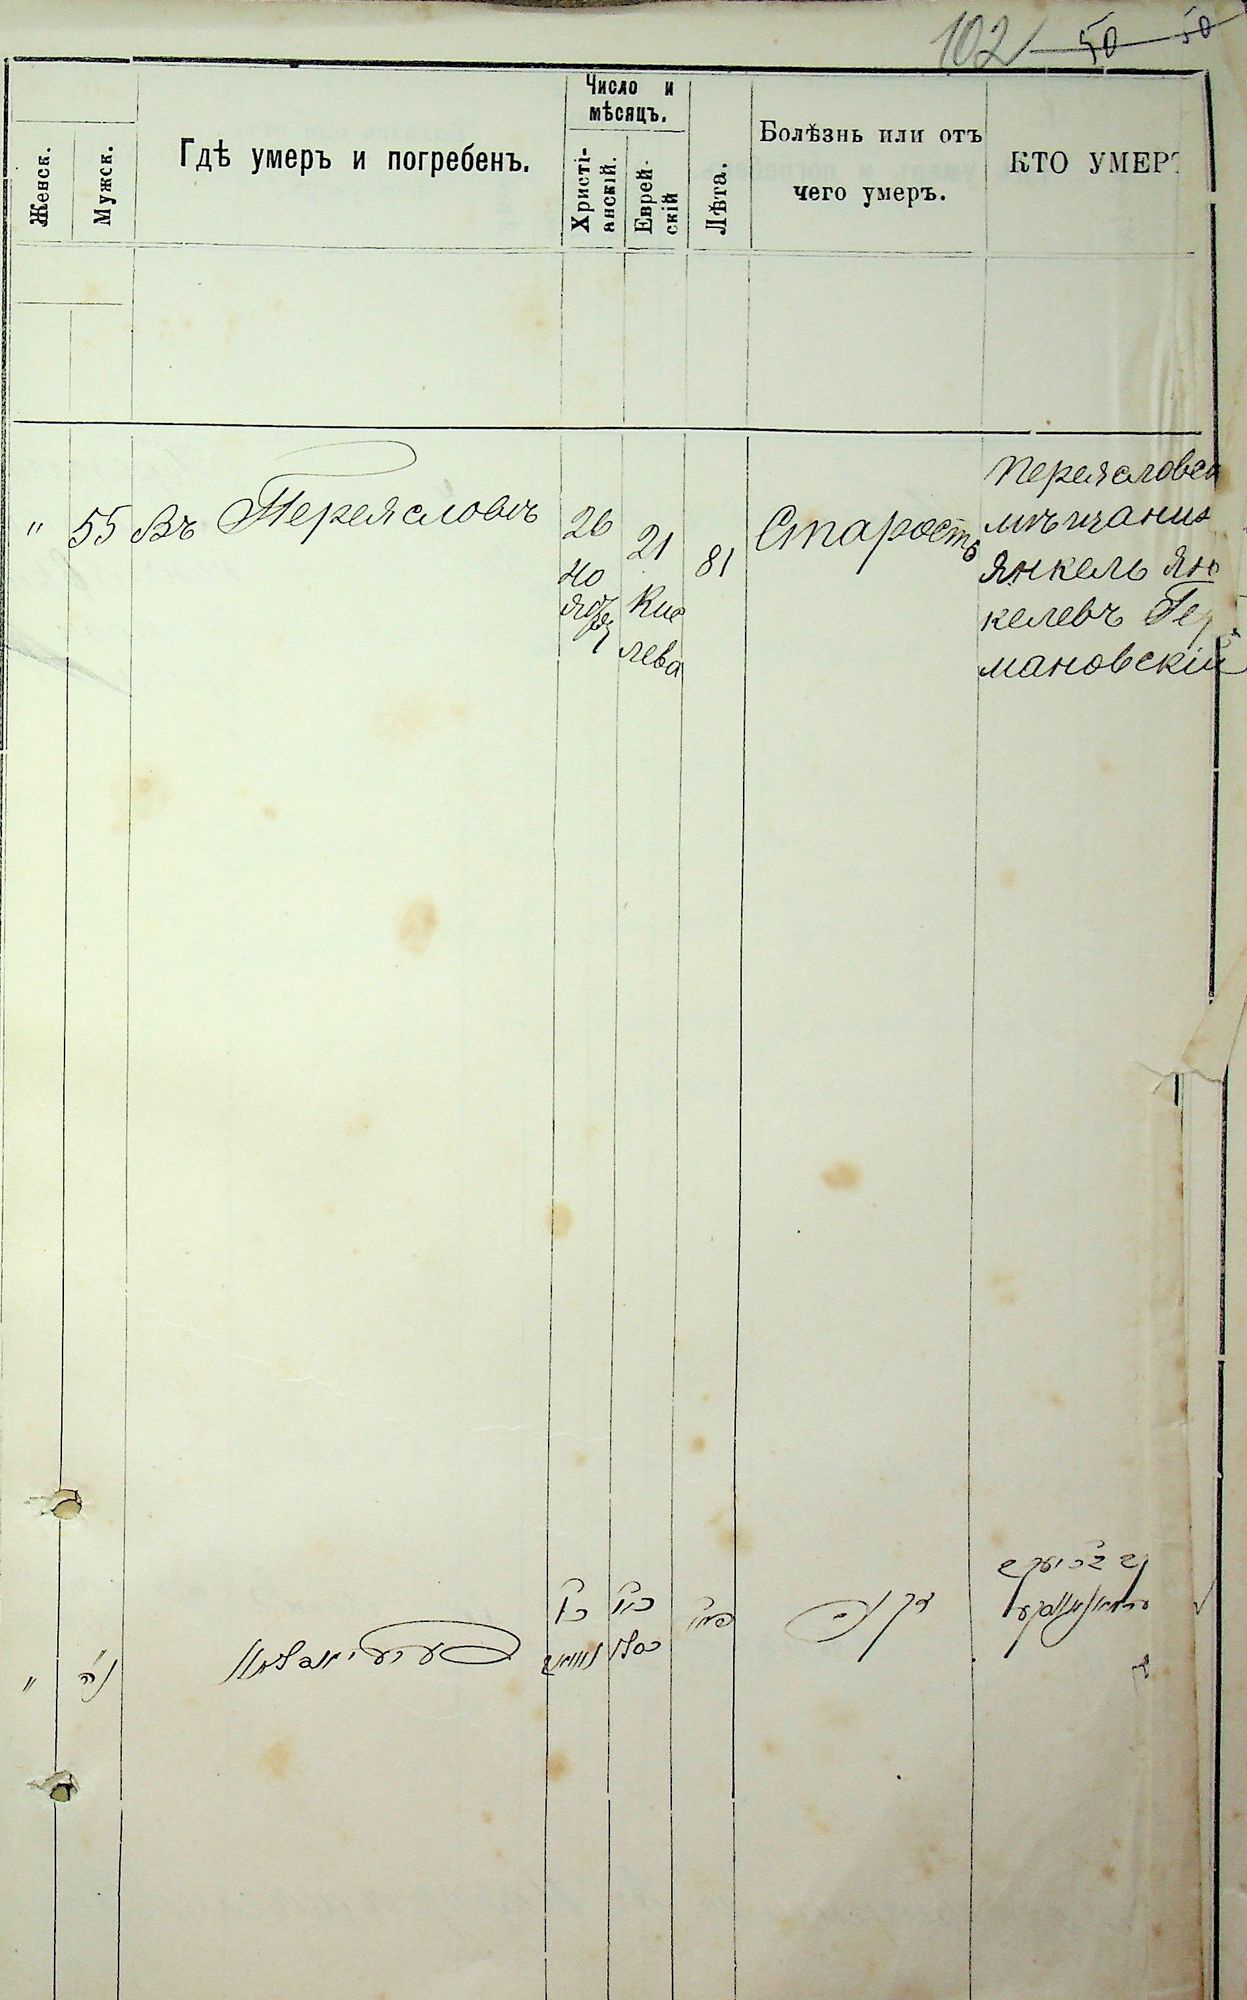 102 50 50
Женск.
Мужск.
Гдѣ умеръ и погребенъ.
Число и
мѣсяцъ.
Христі-
анскій.
Еврей-
скій
Лѣта.
Болѣзнь или отъ
чего умеръ.
КТО УМЕР
" 55 Въ Переяславѣ
26
но
ября
21
Кис
лева
81
Старость
Переясловск
мѣщанин
Янкель Ян
келевъ Гер
мановскій
" נ״ה
כ״ו
כ״א
כסלו
פ״א